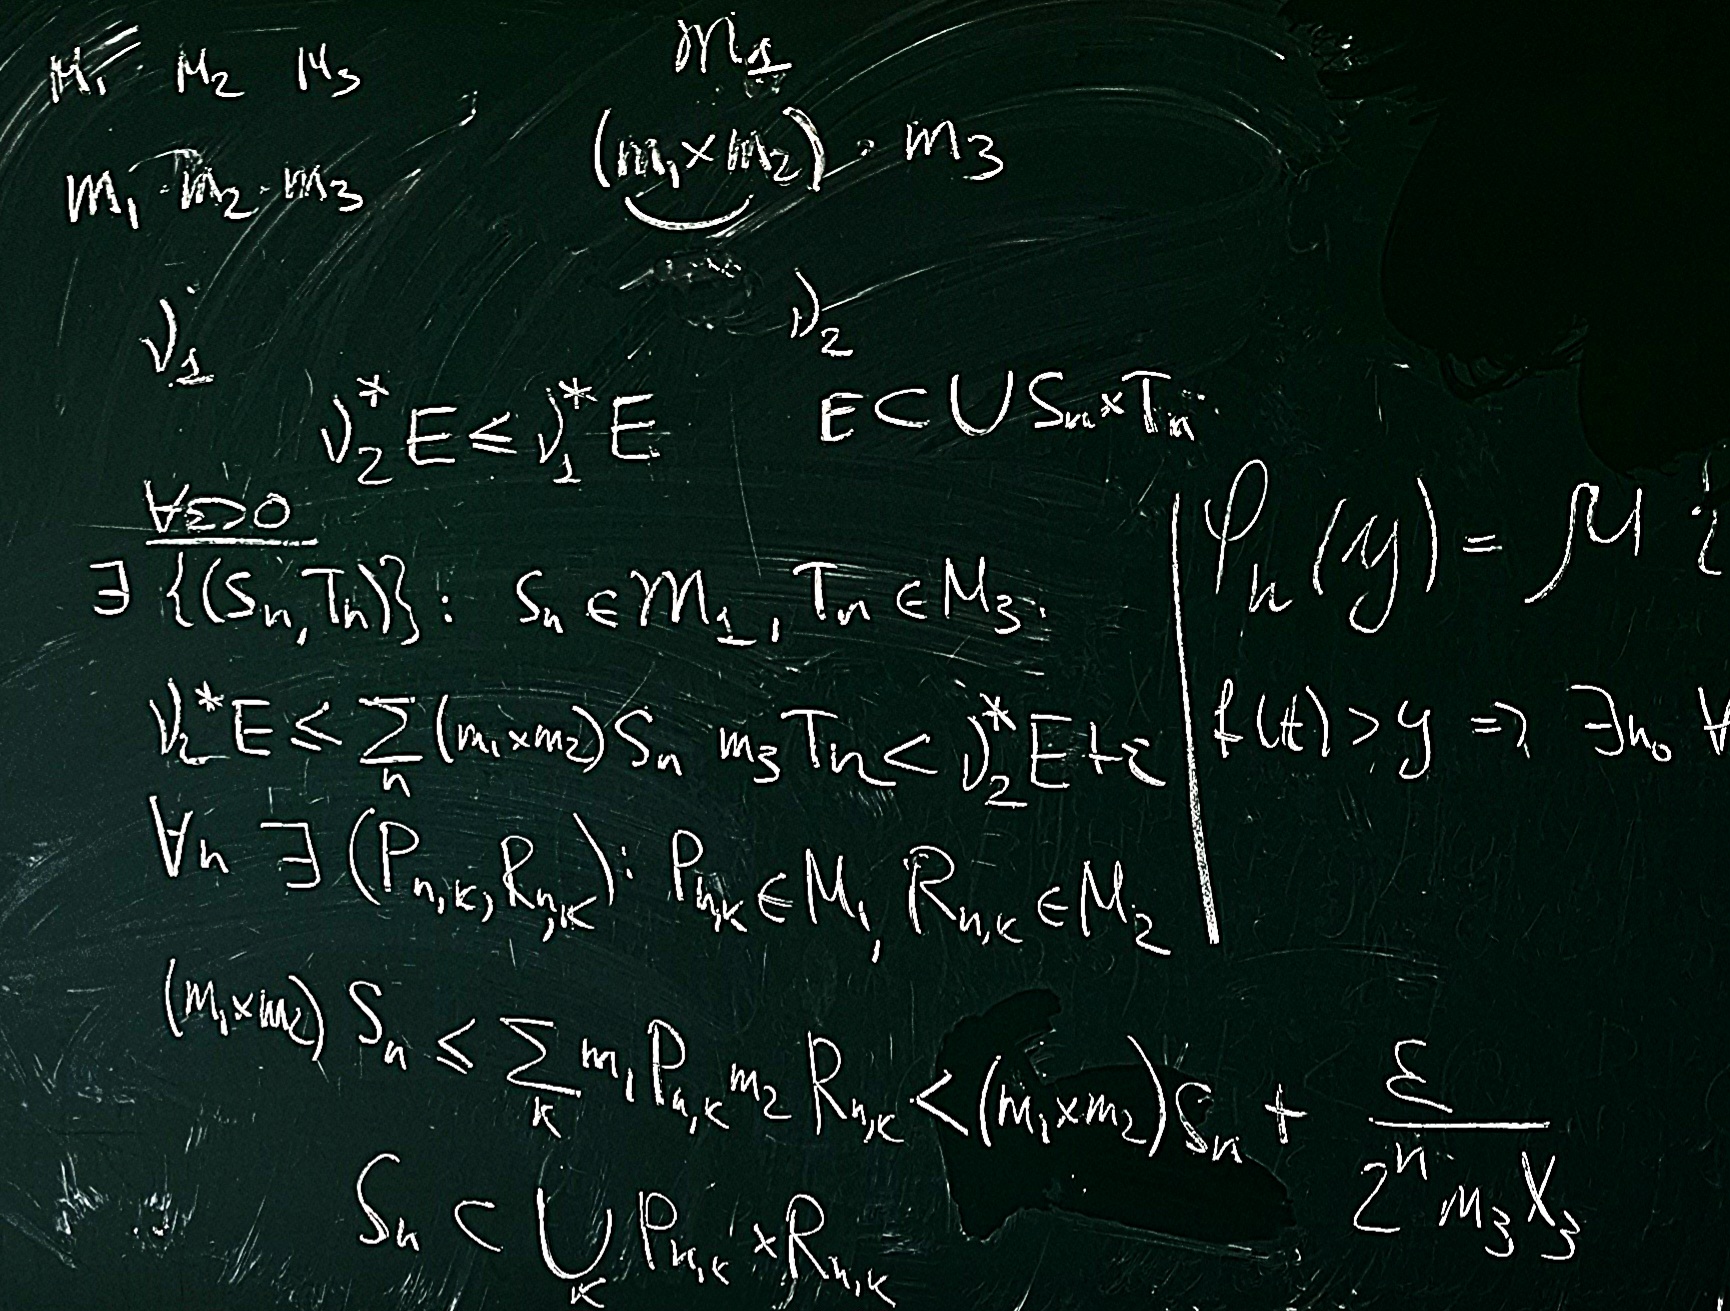 M₁ M₂ M₃
𝔐₁
m₁ · m₂ · m₃
(m₁×m₂) · m₃
ν₁
ν₂
ν₂*E ≤ ν₁*E
E ⊂ ∪ Sₙ×Tₙ
∀ε>0
∃ {(Sₙ,Tₙ)}: Sₙ ∈ 𝔐₁, Tₙ ∈ M₃.
ν₂*E ≤ ∑ₙ (m₁×m₂)Sₙ m₃Tₙ < ν₂*E+ε
∀n ∃ (Pₙ,ₖ, Rₙ,ₖ): Pₙ,ₖ ∈ M₁, Rₙ,ₖ ∈ M₂
(m₁×m₂) Sₙ ≤ ∑ₖ m₁Pₙ,ₖ m₂Rₙ,ₖ < (m₁×m₂)Sₙ + ε/(2ⁿ m₃X₃)
Sₙ ⊂ ∪ₖ Pₙ,ₖ×Rₙ,ₖ
φₙ(y) = μ {
f(t)>y ⇒ ∃n₀ ∀